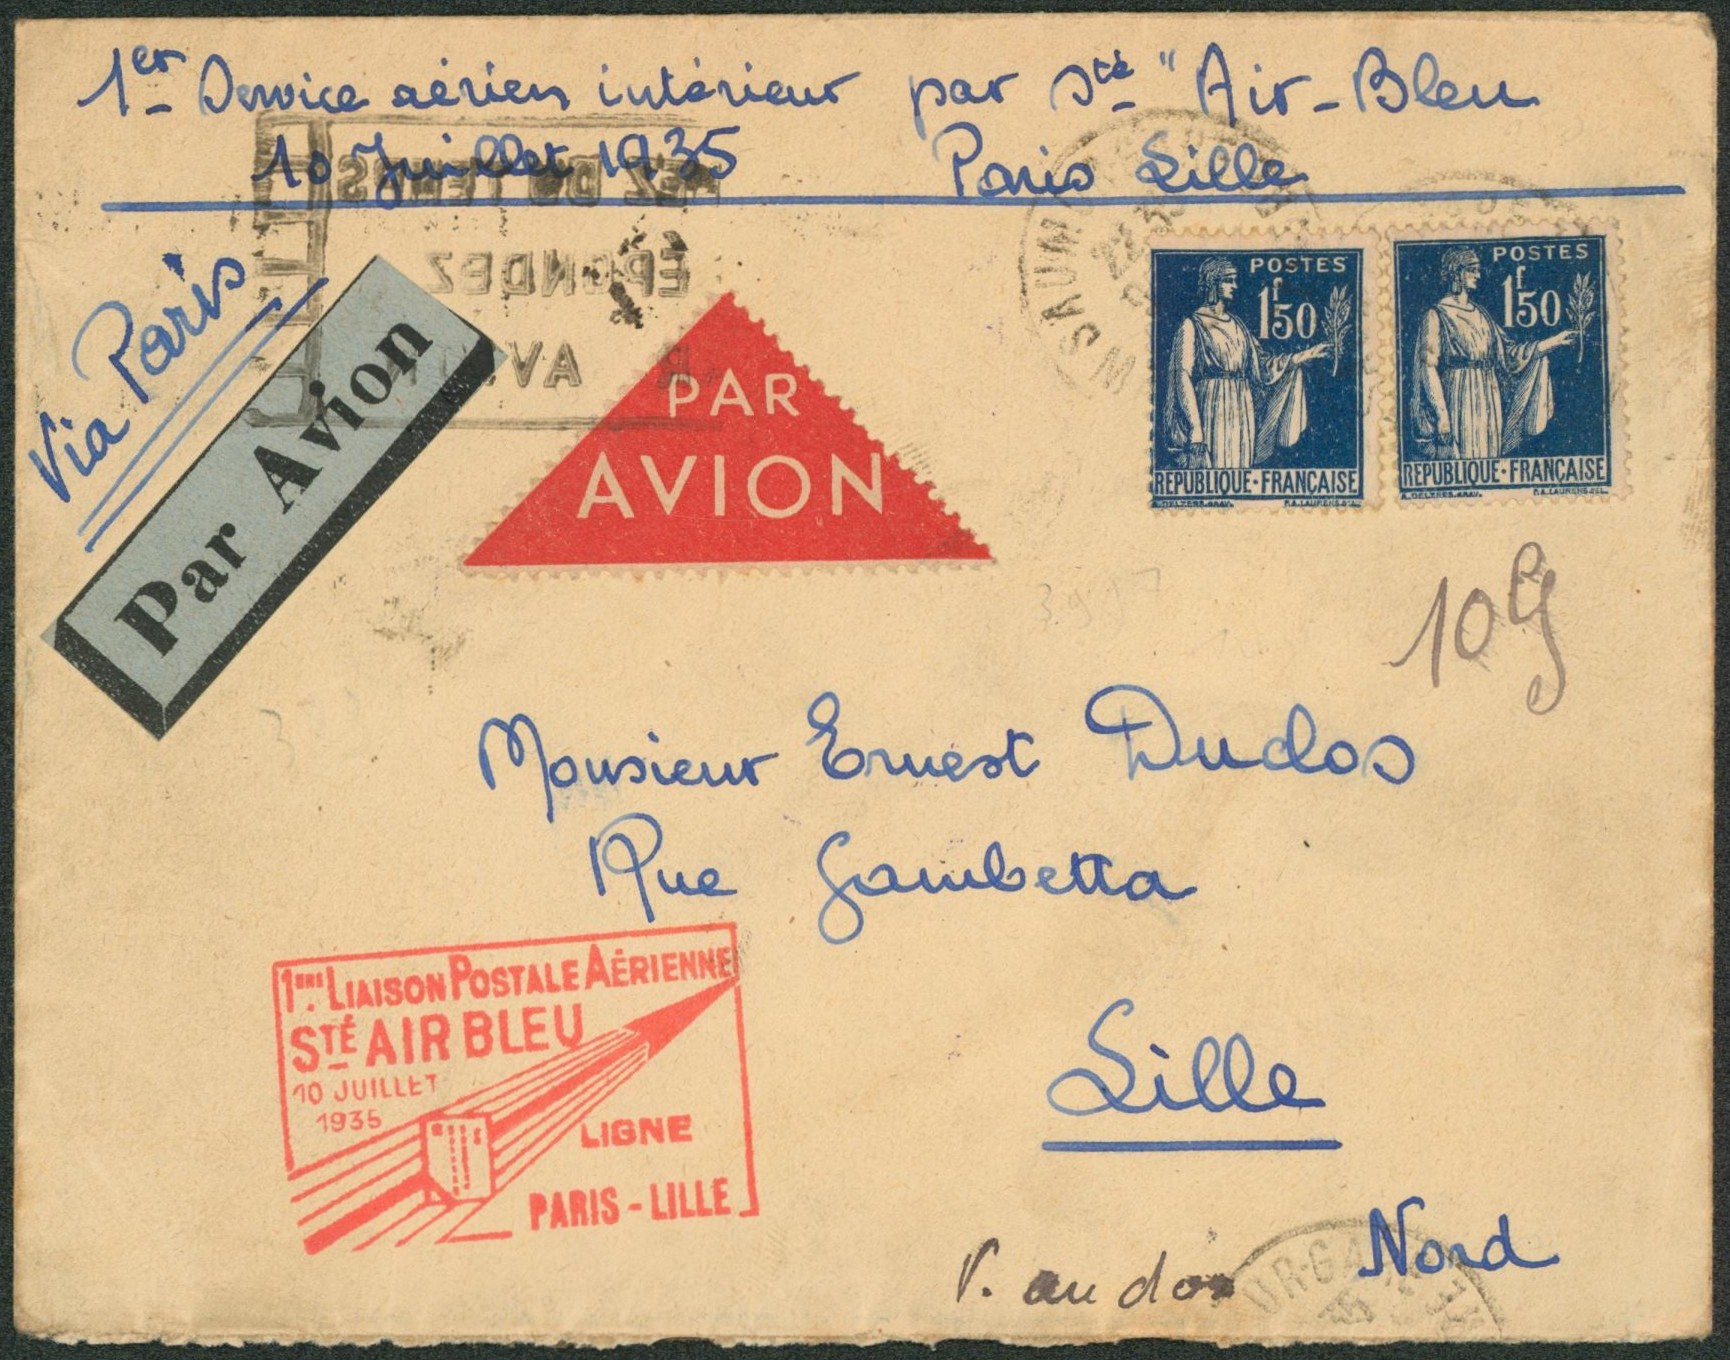 1er Service aérien intérieur par Sté "Air-Bleu
10 Juillet 1935 Paris Lille
Via Paris
Par Avion
PAR
AVION
POSTES
1f50
REPUBLIQUE·FRANÇAISE
POSTES
1f50
REPUBLIQUE·FRANÇAISE
10g
Monsieur Ernest Duclos
Rue Gambetta
Lille
Nord
1ère LIAISON POSTALE AÉRIENNE
STÉ AIR BLEU
10 JUILLET
1935
LIGNE
PARIS - LILLE
V. au dos